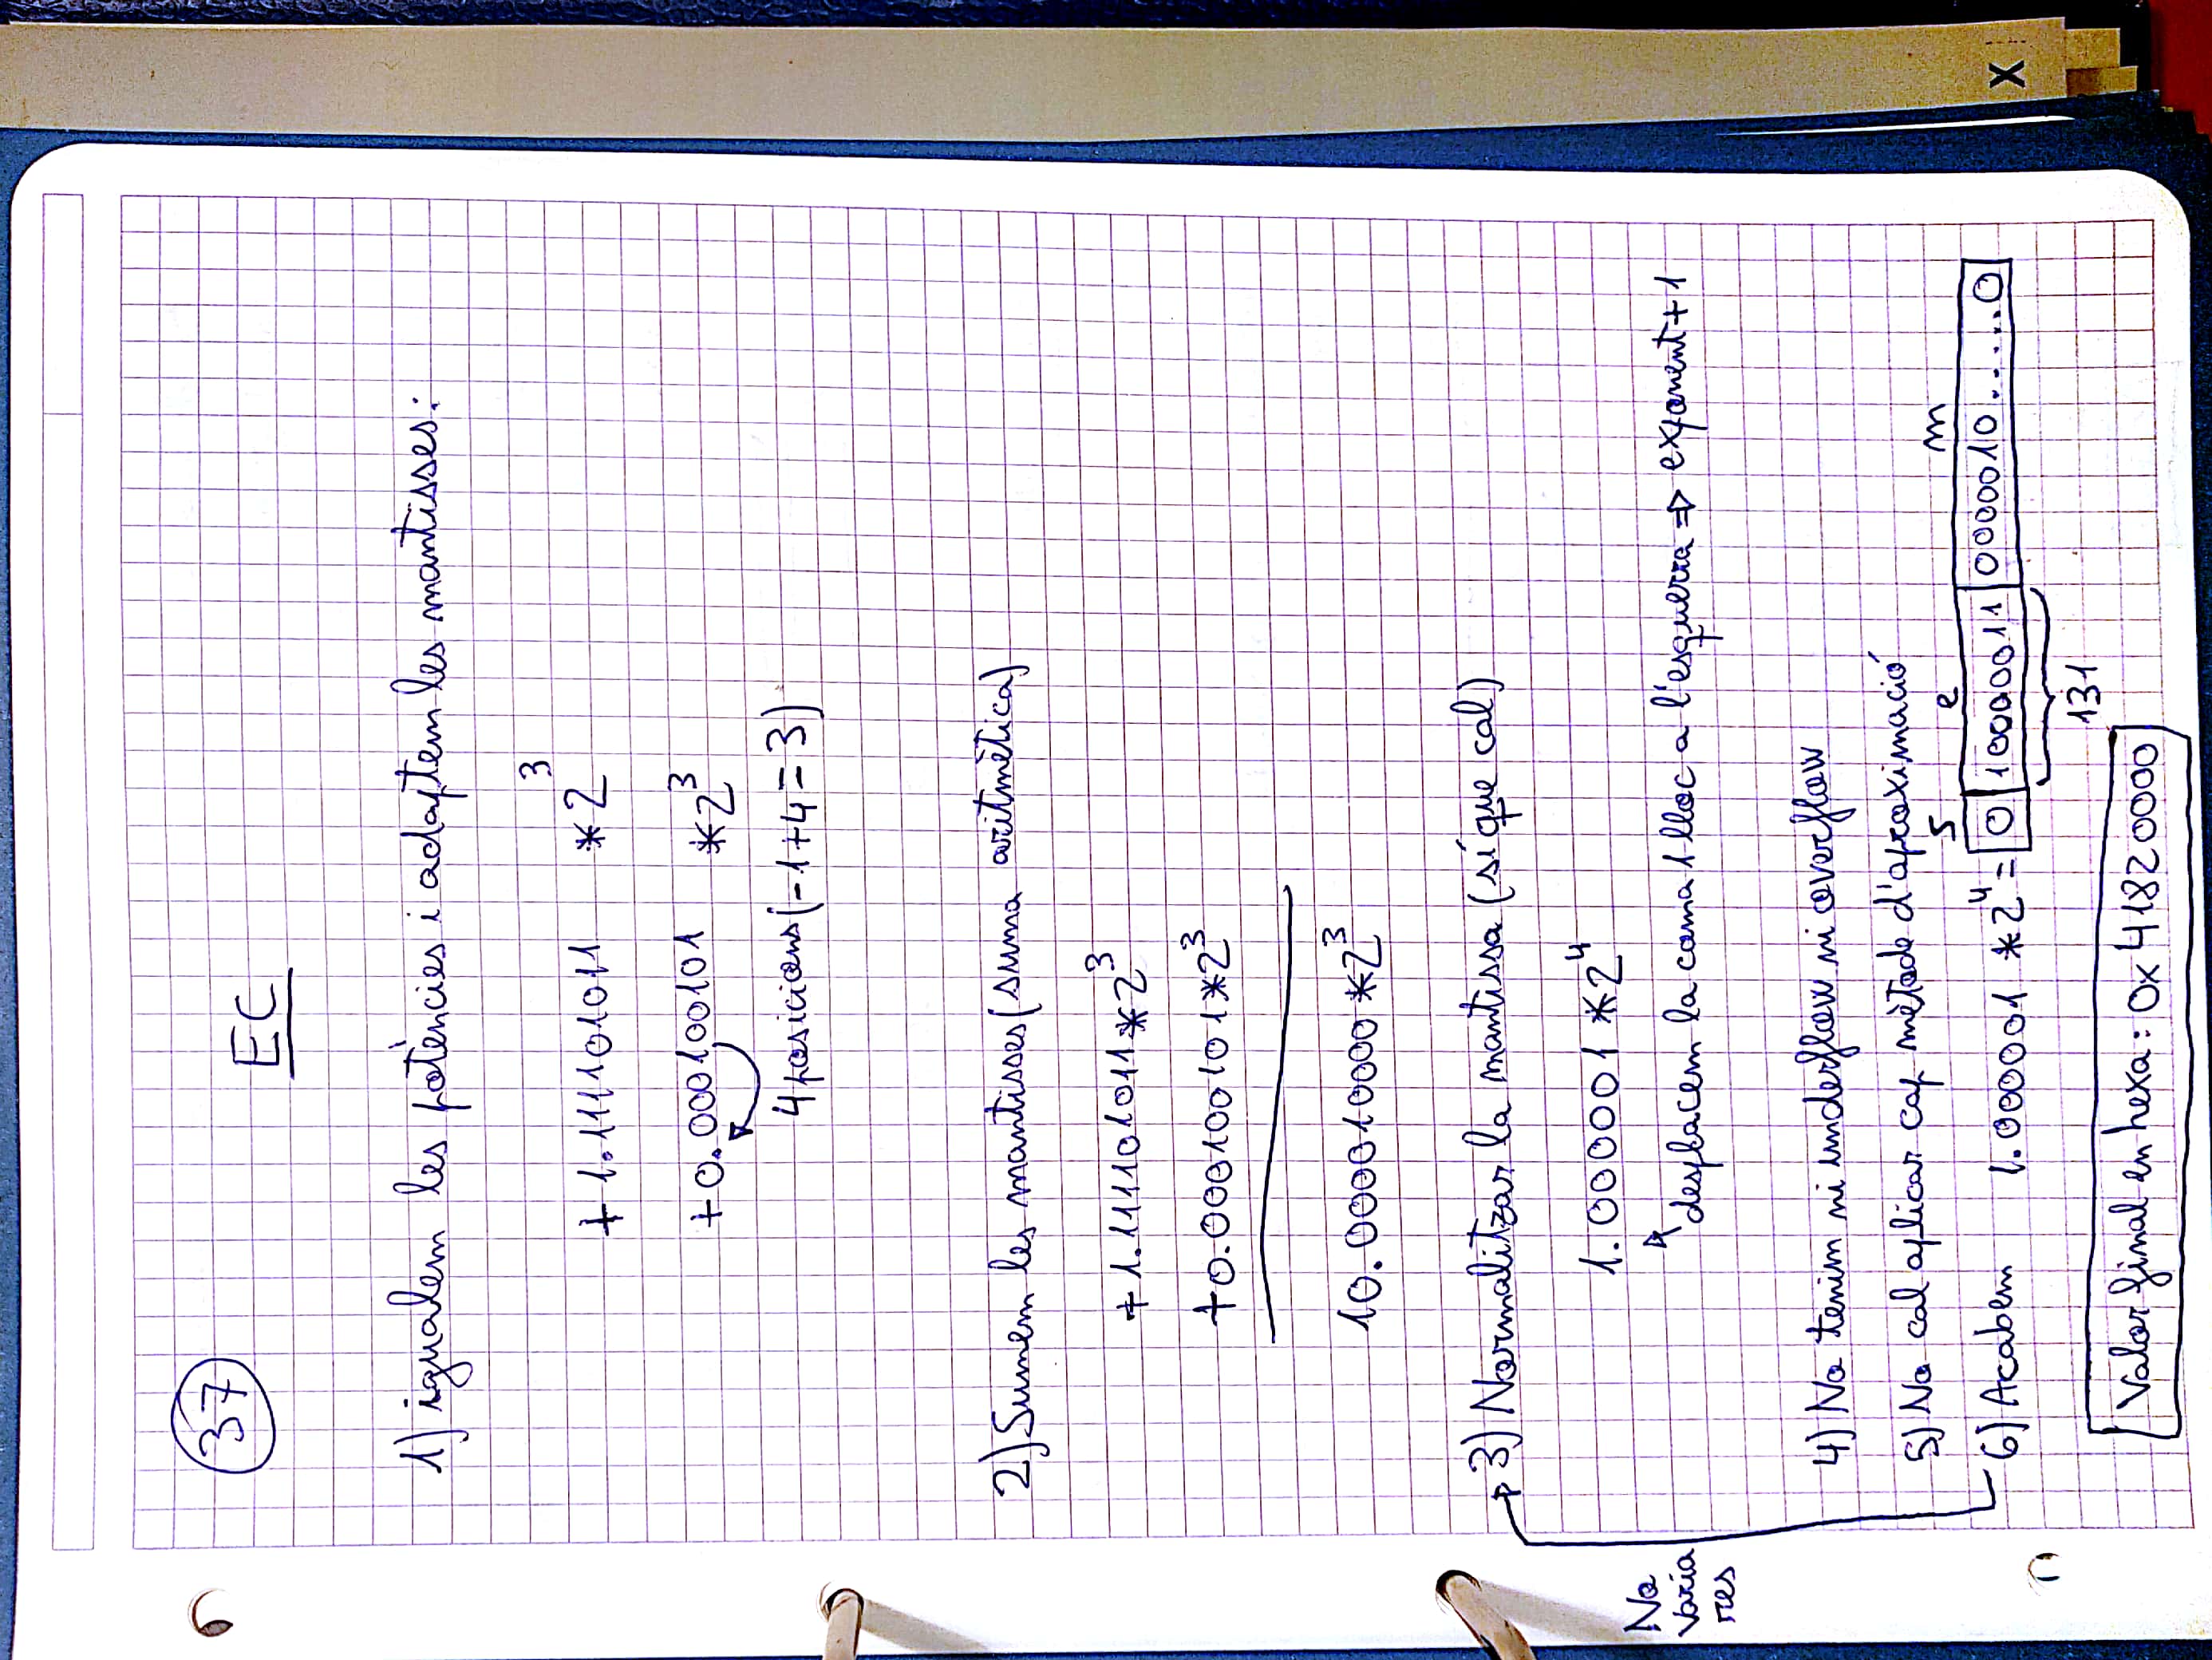 37
EC
1) igualem les potències i adaptem les mantisses:
+ 1.111101011 *2^3
+0.000100101 *2^3
4 posicions (-1+4=3)
2) Sumem les mantisses (suma aritmètica)
+1.111101011*2^3
+0.000100101*2^3
10.000010000*2^3
3) Normalitzar la mantissa (sí que cal)
1.000001*2^4
desplacem la coma 1 lloc a l'esquerra ⇒ exponent+1
No
varia
res
4) No tenim ni underflow ni overflow
5) No cal aplicar cap mètode d'aproximació
s e m
6) Acabem 1.000001 *2^4= 0 10000011 0000010.....0
131
Valor final en hexa: 0x41820000
X